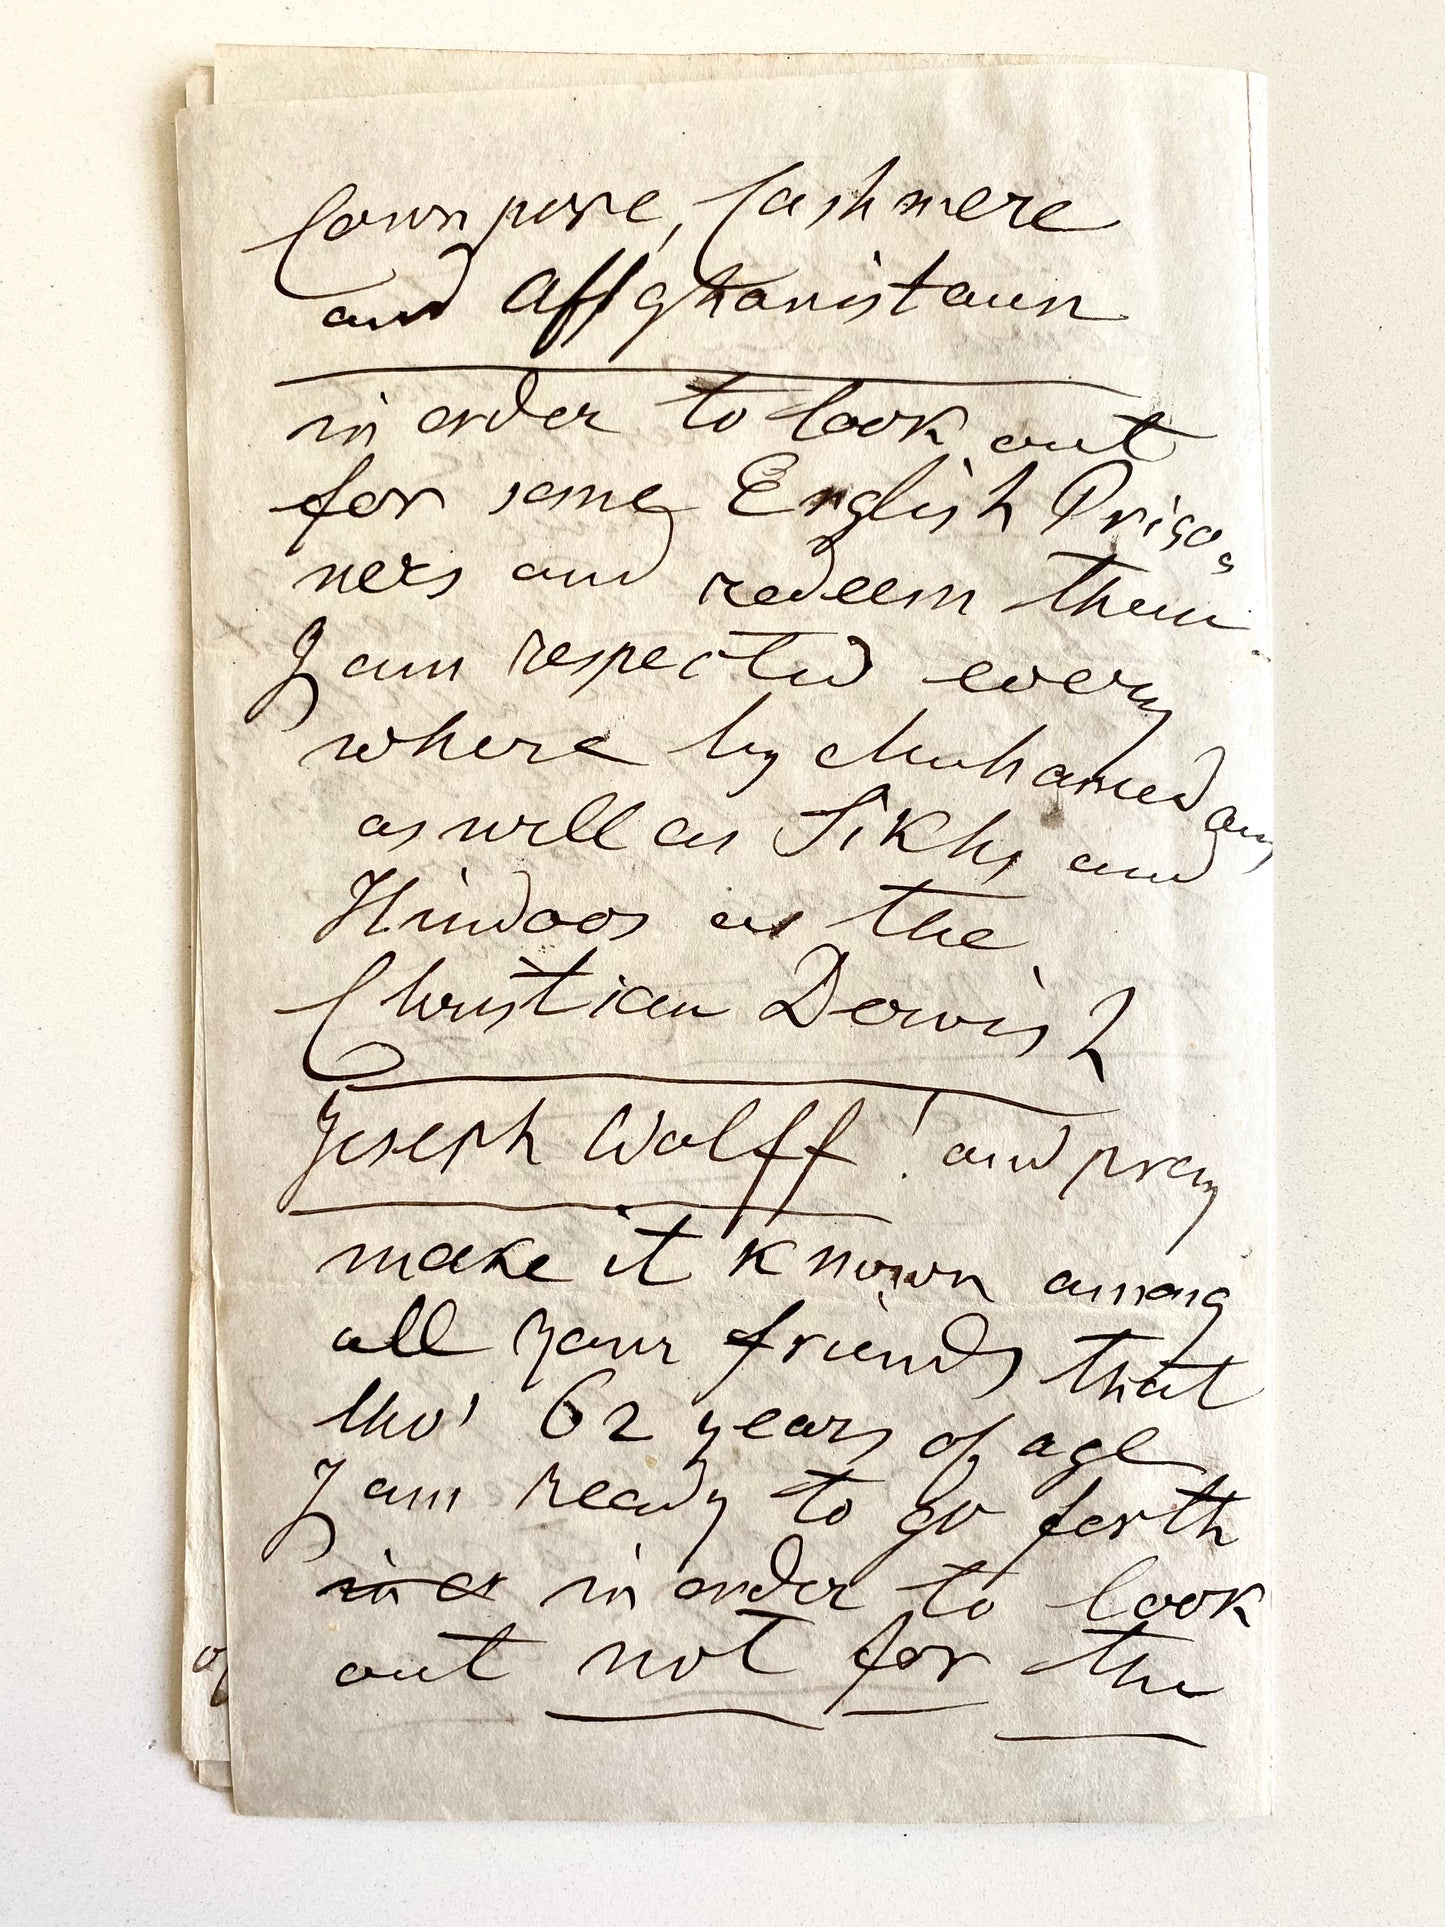 Cawnpore, Cashmere
and Affghanistaun
in order to look out
for some English Priso-
ners and redeem them
I am respected every
where by Muhamedans
as well as Sikhs and
Hindoos as the
Christian Dervish
Joseph Wolff! and pray
make it known among
all your friends that
tho' 62 years of age
I am ready to go forth
in or in order to look
out not for the